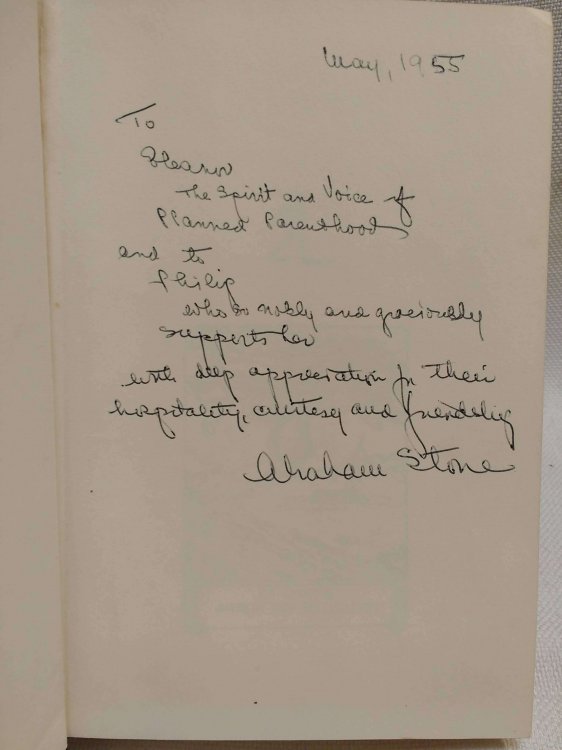 May, 1955
To
Eleanor
The Spirit and Voice of
Planned Parenthood
and to
Philip
who so nobly and graciously
supports her
with deep appreciation for their
hospitality, courtesy and friendship
Abraham Stone